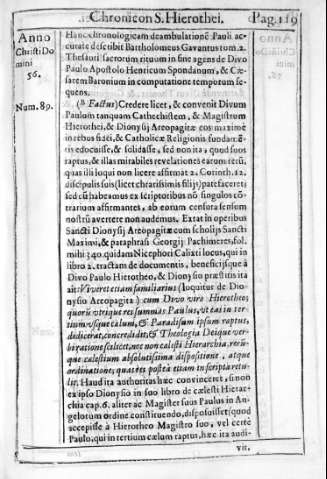 Chronicon S. Hierothei. Pag. 119
Anno
Christi Do
mini
56.
Hanc chronologicam deambulationẽ Pauli ac-
curate describit Bartholomeus Gavantus tom. 2.
Thesauri sacrorum rituum in fine agens de Divo
Paulo Apostolo Henricum Spondanum, & Cæ-
sarem Baronium in computatione temporum se-
quens.
Num. 89.
(b Factus) Credere licet, & convenit Divum
Paulum tanquam Cathechistem, & Magistrum
Hierothei, & Dionysij Areopagitæ eos maximè
in rebus fidei, & Catholicæ Religionis fundamẽ-
tis edocuisse, & solidasse, sed non ita, quod suos
raptus, & illas mirabiles revelationes earum rerũ,
quas illi loqui non licere affirmat 2. Corinth. 12.
discipulis suis (licet charissimis filijs) patefaceret;
sed cũ habeamus ex scriptoribus nõ singulos cõ-
trarium affirmantes, ab eorum censura sensum
nostrũ avertere non audemus. Extat in operibus
Sancti Dionysij Areopagitæ cum scholijs Sancti
Maximi, & paraphrasi Georgij Pachimeres, fol.
mihi 340. quidam Nicephori Calixti locus, qui in
libro 2. tractans de documentis, beneficijsque à
Divo Paulo Hierotheo, & Dionysio præstitis ita
ait: Vivere etiam familiarius (loquitur de Di-
onysio Areopagita) cum Divo viro Hierotheo,
quorũ utrique res summas Paulus, ut eas in ter-
tium usque cælum, & Paradisum ipsum raptus,
didicerat, concredidit, & Theologia Deique ver-
bi ratione scilicet, nec non cælesti Hierarchia, rerũ-
que cælestium absolutissima dispositione, atque
ordinatione, quas res posteà etiam in scripta retu-
lit. Haud ita authoritas hæc convinceret, si non
ex ipso Dionysio in suo libro de cælesti Hierar-
chia cap. 6. aliter ac Magister suus Paulus in An-
gelorum ordine constituendo, disposuisset (quod
accepisse à Hierotheo Magistro suo, vel certè
Paulo, qui in tertium cælum raptus, hæc ita audi-
vit,